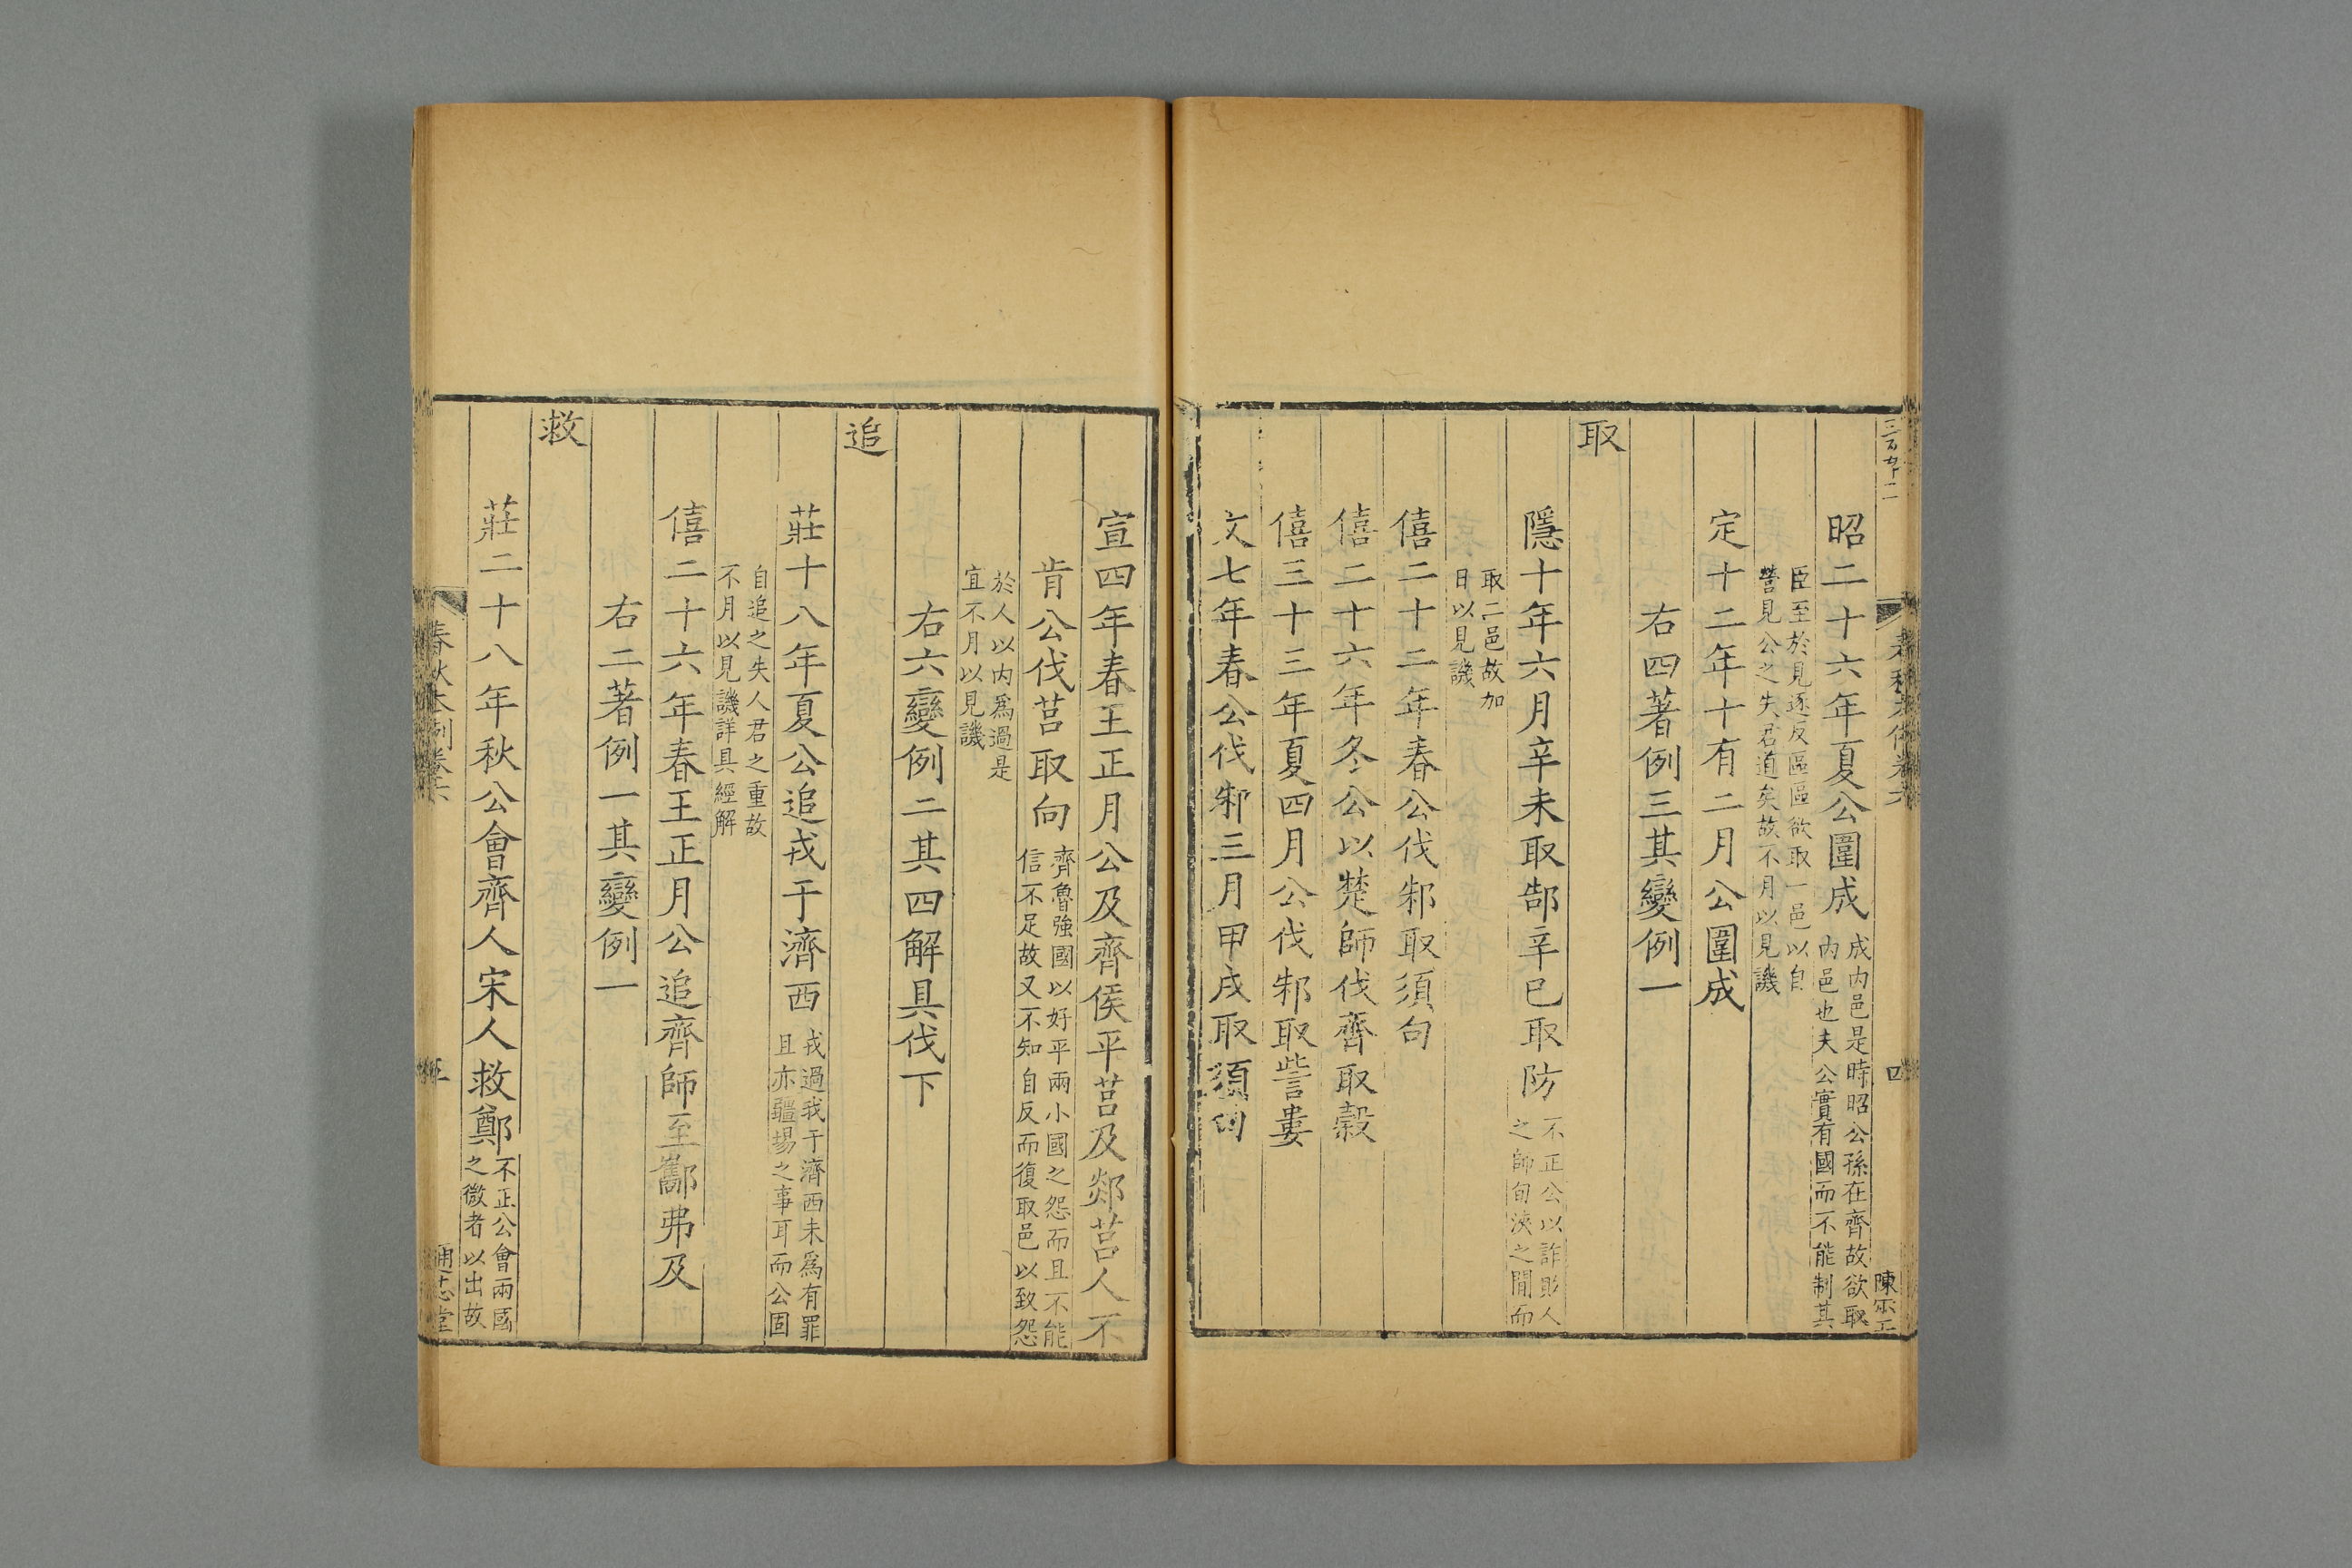 昭二十六年夏公圍成成内邑是時昭公孫在齊故欲取内邑也夫公實有國而不能制其
臣至於見逐反區區欲取一邑以自營見公之失君道矣故不月以見譏
定十二年十有二月公圍成
右四著例三其變例一
取
隱十年六月辛未取郜辛巳取防不正公以詐敗人之師旬浹之間而
取二邑故加日以見譏
僖二十二年春公伐邾取須句
僖二十六年冬公以楚師伐齊取穀
僖三十三年夏四月公伐邾取訾婁
文七年春公伐邾三月甲戌取須句
宣四年春王正月公及齊侯平莒及郯莒人不
肯公伐莒取向齊魯強國以好平兩小國之怨而且不能信不足故又不知自反而復取邑以致怨
於人以内爲過是宜不月以見譏
右六變例二其四解具伐下
追
莊十八年夏公追戎于濟西戎過我于濟西未爲有罪且亦疆埸之事耳而公固
自追之失人君之重故不月以見譏詳具經解
僖二十六年春王正月公追齊師至酅弗及
右二著例一其變例一
救
莊二十八年秋公會齊人宋人救鄭不正公會兩國之微者以出故
春秋本例卷六
五
通志堂